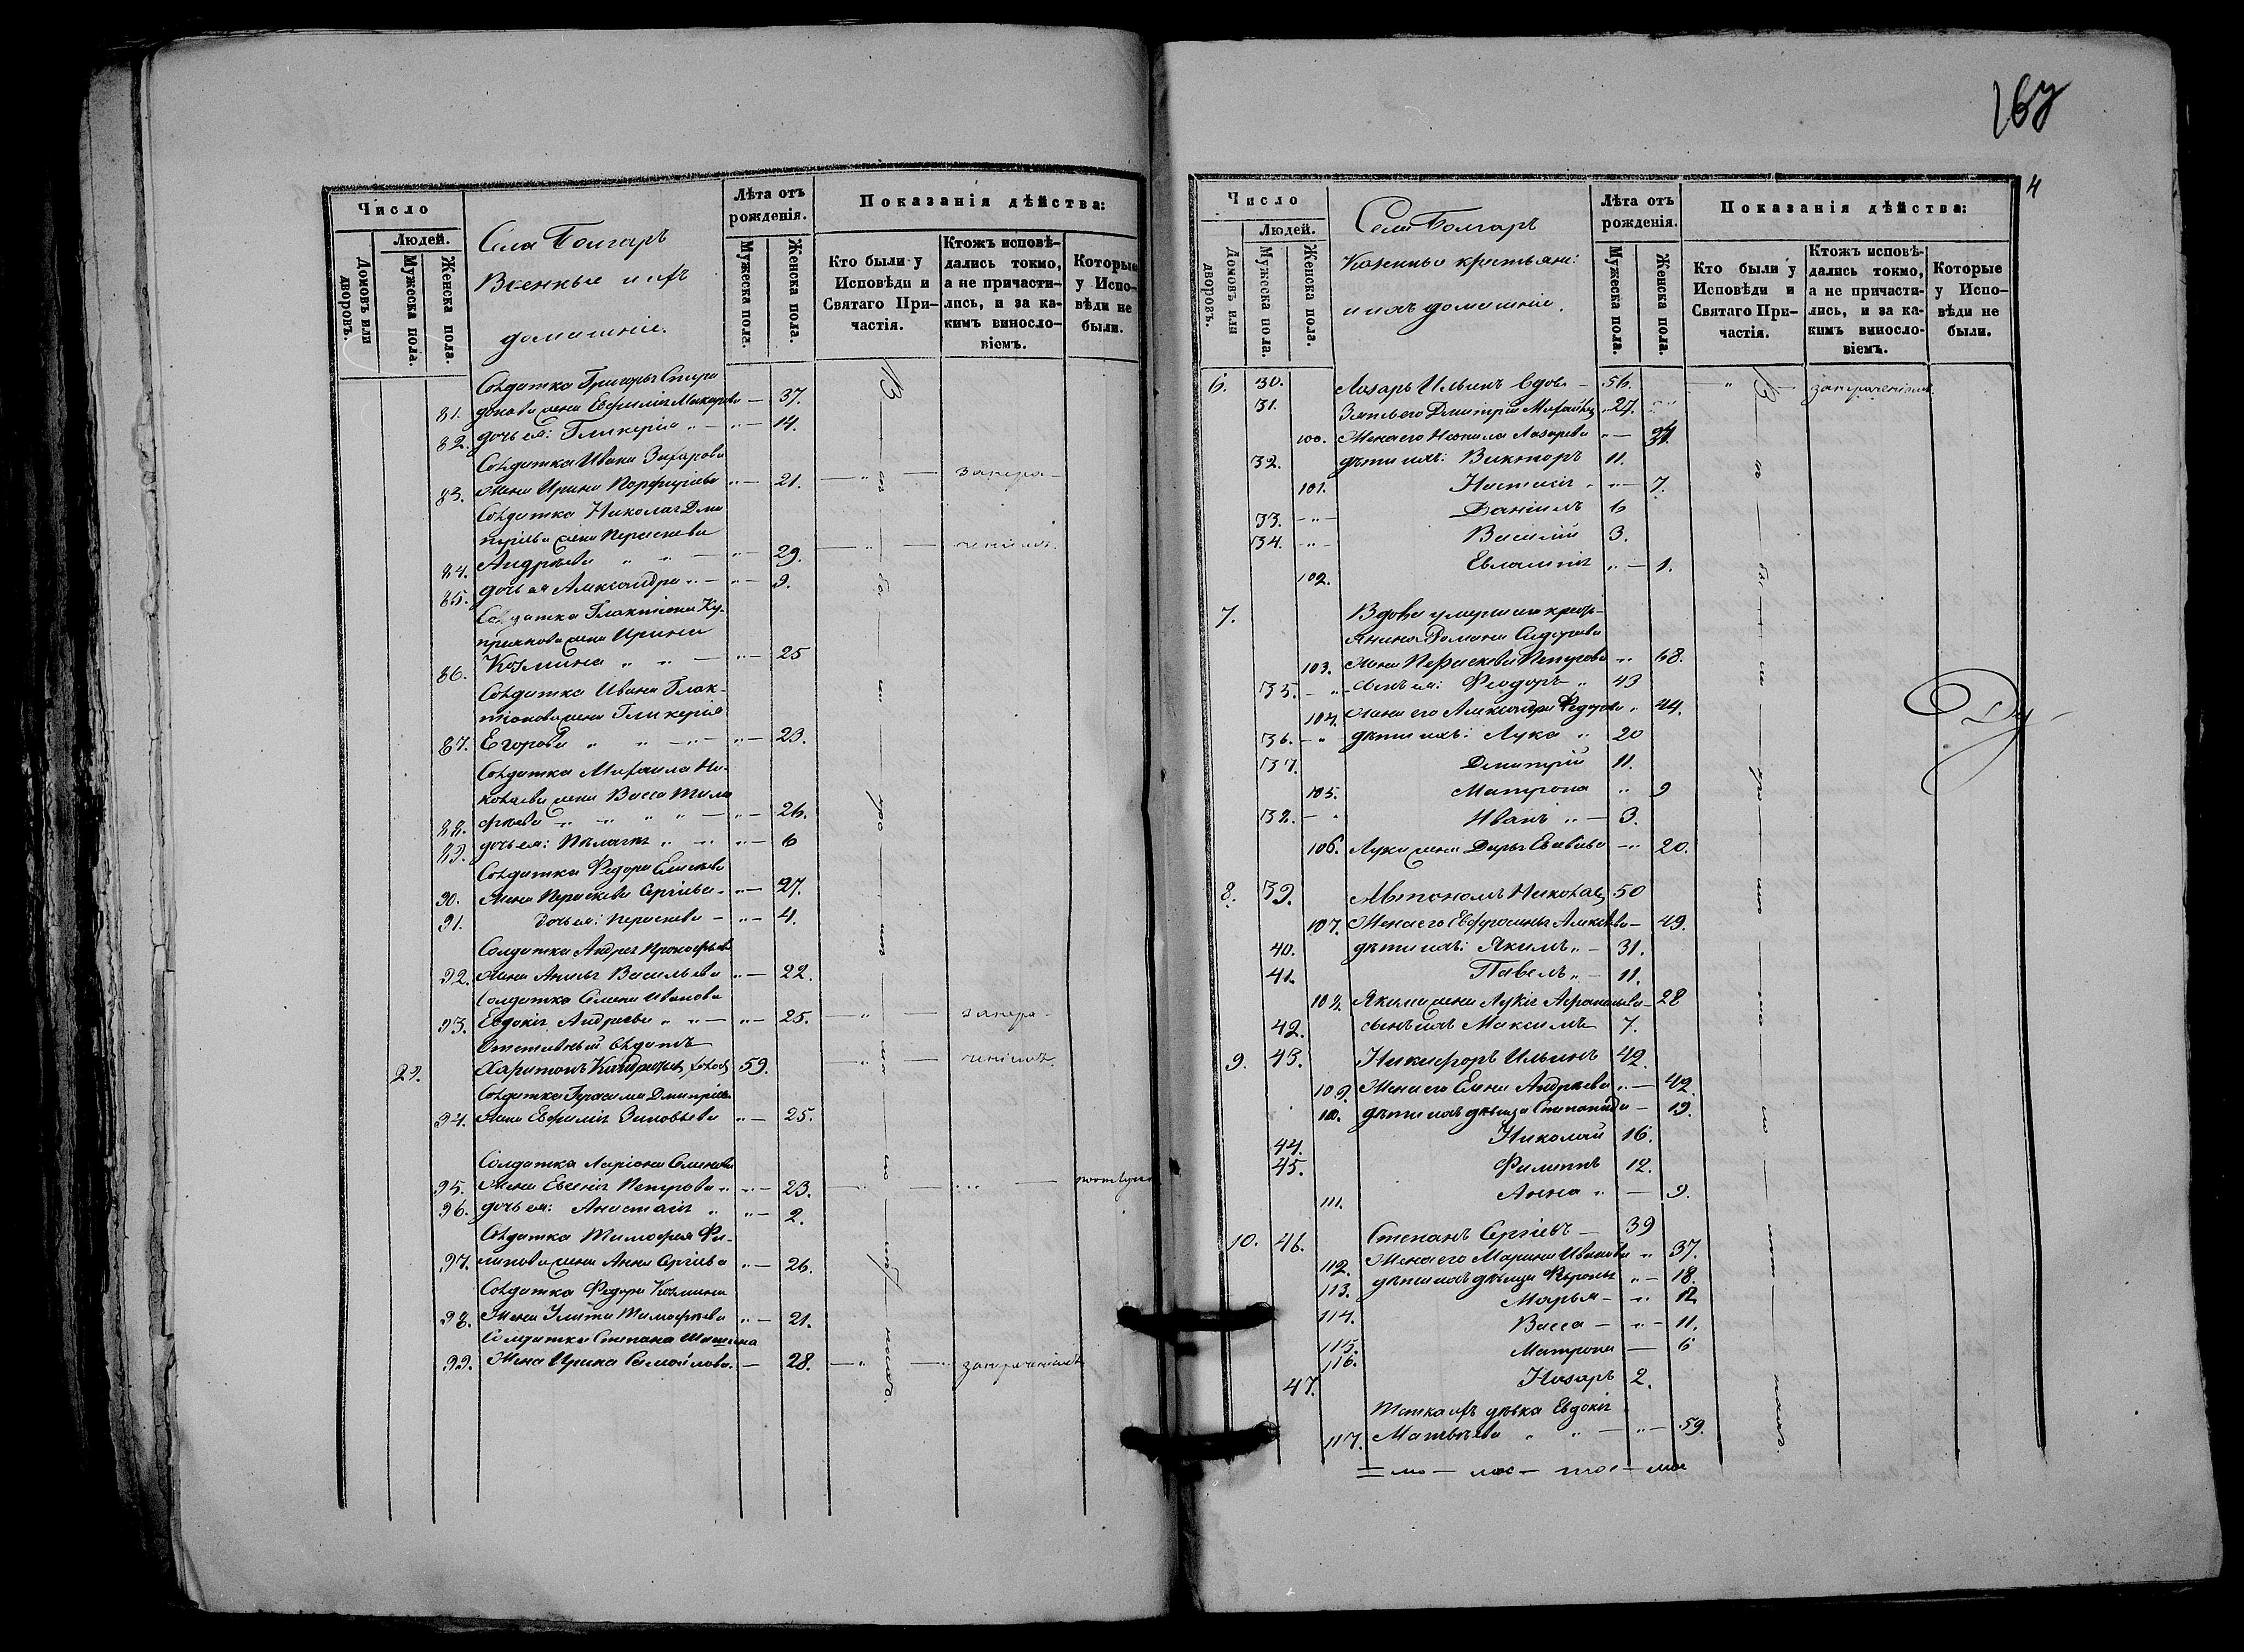 167
4
Число
Людей.
Домовъ или дворовъ.
Мужеска пола.
Женска пола.
Села Болгаръ
Военные и ихъ
домашніе.
Лѣта отъ рожденія.
Мужеска пола.
Женска пола.
Показанія дѣйства:
Кто были у Исповѣди и Святаго Причастія.
Ктожъ исповѣдались токмо, а не причастились, и за какимъ винословіемъ.
Которые у Исповѣди не были.
Солдатка Григорья Спири
81. донова жена Евфимія Макарова — 37.
82. дочь ея: Гликерія " — " — 14.
Солдатка Ивана Захарова
83. жена Ирина Порфиріева " — 21. — " — за пера-
Солдатка Николая Дми
тріева жена Параскева
84. Андреева " " — " — 29. — " — ченіемъ.
85. дочь ея Александра " — " — 9.
Солдатка Галактіона Ку-
пріянова жена Ирина
86. Козмина " " — " — 25
Солдатка Ивана Галак-
тіонова жена Гликерія
87. Егорова " " — " — " — 23.
Солдатка Михаила Ни-
колаева жена Васса Тимо
88. фѣева " " " " — " — 26.
89. дочь ея: Пелагія " — " — 6
Солдатка Федора Елисѣева
90. жена Параскева Сергіева " — " — 27.
91. дочь ея: Параскева — " — 4.
Солдатка Андрея Прокофьева
92. жена Анисья Васильева " — 22.
Солдатка Семена Иванова
93. Евдокія Андреева " " — " — 25. — " — за пера-
Отставный солдатъ
29. Харитонъ 59. — " — ченіемъ
Солдатка Герасима Дмитріева
94. жена Евфимія Зиновьева " — 25.
Солдатка Ларіона Семенова
95. жена Евгенія Петрова " " — 23. — " —
96. дочь ея: Анастасія " " — 2.
Солдатка Тимофея Фи-
97. липова жена Анна Сергіева " — 26.
Солдатка Федора Козмина
98. жена Улита Тимофѣева " — 21.
Солдатка Степана
99. жена Ирина Самойлова. — 28. — " — за пераченіемъ
Число
Людей.
Домовъ или дворовъ.
Мужеска пола.
Женска пола.
Села Болгаръ
Казенные крестьяне:
и ихъ домашніе.
Лѣта отъ рожденія.
Мужеска пола.
Женска пола.
Показанія дѣйства:
Кто были у Исповѣди и Святаго Причастія.
Ктожъ исповѣдались токмо, а не причастились, и за какимъ винословіемъ.
Которые у Исповѣди не были.
6. 30. Лазарь Ильинъ вдов. — 56. — " — за пераченіемъ
31. Зять его Дмитрій Михайлъ 27.
100. Жена его Неонила Лазарева " —
32. дѣти ихъ: Викторъ 11.
101. Настасія " " — 7.
33. — " — Даніилъ 6
34. — " — Василій 3.
102. Евлампія " — 1.
7. Вдова умершаго кресть-
янина Романа Сидорова
103. жена Параскева Петрова " 68.
35. — " — сынъ ея: Феодоръ " 43
104. жена его Александра Федорова " 44.
36. — " дѣти ихъ: Лука " 20
37. Дмитрій 11.
105. Матрона " 9
38. — " Иванъ " — 3.
106. Луки жена Дарья — " 20.
8. 39. Автономъ Николаевъ 50
107. Жена его Евфросинья Алексѣева — 49.
40. дѣти ихъ: Якимъ " — 31.
41. Павелъ " — 11.
108. Якима жена Лукія Афанасьева — 28
42. сынъ ихъ Максимъ 7.
9. 43. Никифоръ Ильинъ 42.
109. Жена его Елена Андреева " — 42.
110. дѣти ихъ дѣвица Степанида — 19.
44. Николай 16.
45. Филиппъ 12.
111. Анна " — 9.
10. 46. Степанъ Сергіевъ — 39
112. Жена его Марина Иванова " 37.
113. дѣти ихъ дѣвица " — 18.
114. Марья — " 12
115. Васса — " — 11.
116. Матрона — 6
47. Назаръ 2.
Тетка ихъ дѣвка Евдокія
117. Матвѣева " " — " — 59.